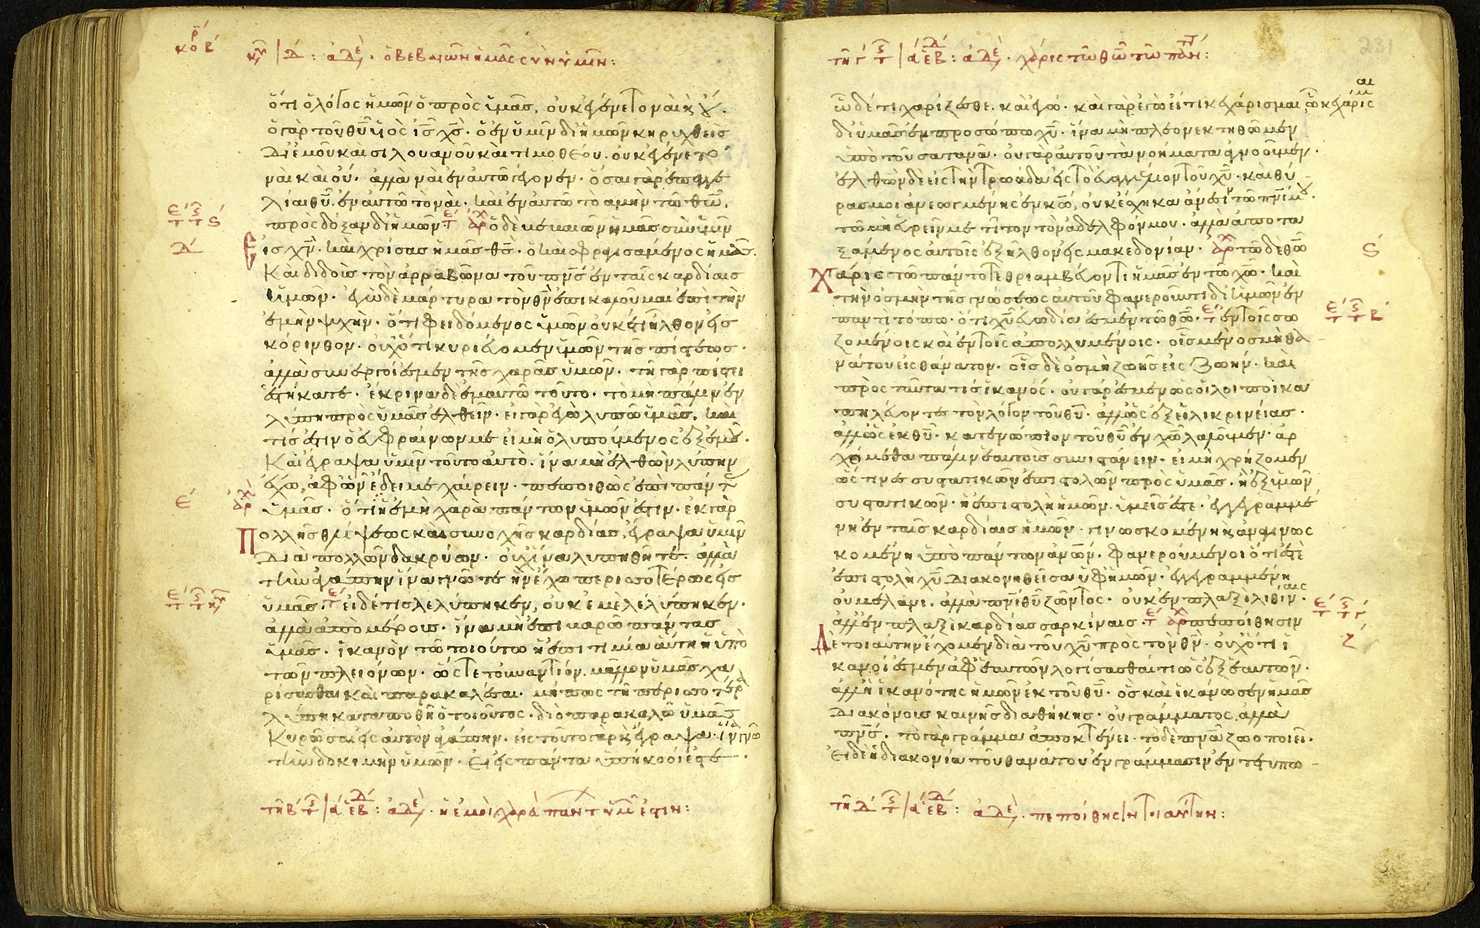 κυ Δ : ἀδε· ὁ βεβαιῶν ἡμᾶς σὺν ὑμῖν:
ὅτι ὁ λόγος ἡμῶν ὁ πρὸς ὑμᾶς, οὐκ ἐγένετο ναὶ κ οὔ·
ὁ γὰρ τοῦ θυ υἱὸς ις χς· ὁ ἐν ὑμῖν δι ἡμῶν κηρυχθεὶς
δι ἐμοῦ καὶ σιλουανοῦ καὶ τιμοθέου· οὐκ ἐγένετο
ναὶ καὶ οὔ· ἀλλὰ ναὶ ἐν αὐτῶ γέγονεν· ὅσαι γὰρ ἐπαγγε
λίαι θυ ἐν αὐτῶ τὸ ναί· καὶ ἐν αὐτῶ τὸ ἀμὴν τῶ θω
πρὸς δόξαν δι ἡμῶν· ὁ δὲ βεβαιῶν ἡμᾶς σὺν ὑμῖν
εἰς χν· καὶ χρίσας ἡμᾶς θς· ὁ καὶ σφραγισάμενος ἡμᾶς·
Καὶ διδοὺς τὸν ἀρραβῶνα τοῦ πνς ἐν ταῖς καρδίαις
ἡμῶν· ἐγὼ δὲ μάρτυρα τὸν θν ἐπικαλοῦμαι ἐπὶ τὴν
ἐμὴν ψυχὴν· ὅτι φειδόμενος ὑμῶν οὐκέτι ἦλθον εἰς
κόρινθον· οὐχ ὅτι κυριεύομεν ὑμῶν τῆς πίστεως·
ἀλλὰ συνεργοί ἐσμεν τῆς χαρᾶς ὑμῶν· τῆ γὰρ πίστει
ἑστήκατε· ἔκρινα δὲ ἐμαυτῶ τοῦτο· τὸ μὴ πάλιν ἐν
λύπη πρὸς ὑμᾶς ἐλθεῖν· εἰ γὰρ ἐγὼ λυπῶ ὑμᾶς, καὶ
τίς ἐστιν ὁ εὐφραίνων με εἰ μὴ ὁ λυπούμενος ἐξ ἐμοῦ·
Καὶ ἔγραψα ὑμῖν τοῦτο αὐτὸ· ἵνα μὴ ἐλθὼν λύπην
ἔχω, ἀφ ὧν ἔδει με χαίρειν· πεποιθὼς ἐπὶ πάντ
ὑμᾶς· ὅτι ἡ ἐμὴ χαρὰ πάντων ὑμῶν ἐστιν· ἐκ γὰρ
Πολλῆς θλίψεως καὶ συνοχῆς καρδίας, ἔγραψα ὑμῖν
διὰ πολλῶν δακρύων· οὐχ ἵνα λυπηθῆτε· ἀλλὰ
τὴν ἀγάπην ἵνα γνῶτε ἣν ἔχω περισσοτέρως εἰς
ὑμᾶς· εἰ δέ τις λελύπηκεν, οὐκ ἐμὲ λελύπηκεν·
ἀλλὰ ἀπὸ μέρους· ἵνα μὴ ἐπιβαρῶ πάντας
ὑμᾶς· ἱκανὸν τῶ τοιούτω ἡ ἐπιτιμία αὕτη ἡ ὑπὸ
τῶν πλειόνων· ὥστε τοὐναντίον, μᾶλλον ὑμᾶς χα
ρίσασθαι καὶ παρακαλέσαι· μήπως τῆ περισσοτέρα
λύπη καταποθῆ ὁ τοιοῦτος· διὸ παρακαλῶ ὑμᾶς
Κυρῶσαι εἰς αὐτὸν ἀγάπην· εἰς τοῦτο γὰρ κ ἔγραψα· ἵνα γνῶ
τὴν δοκιμὴν ὑμῶν· εἰ εἰς πάντα ὑπήκοοί ἐστε
ἀδε· ἡ ἐμὴ χαρὰ πάντ ὑμῶν ἐστιν:
ἀδε· χάρις τῶ θω τῶ παν:
ὧ δέ τι χαρίζεσθε· καὶ ἐγώ· καὶ γὰρ ἐγὼ εἴ τι κεχάρισμαι ὧ κεχάρισμαι
δι ὑμᾶς ἐν προσώπω χυ· ἵνα μὴ πλεονεκτηθῶμεν
ὑπὸ τοῦ σατανᾶ· οὐ γὰρ αὐτοῦ τὰ νοήματα ἀγνοοῦμεν·
ἐλθὼν δὲ εἰς τὴν τρωάδα εἰς τὸ εὐαγγέλιον τοῦ χυ· καὶ θύ
ρας μοι ἀνεωγμένης ἐν κω, οὐκ ἔσχηκα ἄνεσιν τῶ πνι μου
τῶ μὴ εὑρεῖν με τίτον τὸν ἀδελφόν μου· ἀλλὰ ἀποτα
ξάμενος αὐτοῖς ἐξῆλθον εἰς μακεδονίαν· τῶ δὲ θω
Χάρις τῶ πάντοτε θριαμβεύοντι ἡμᾶς ἐν τῶ χω· καὶ
τὴν ὀσμὴν τῆς γνώσεως αὐτοῦ φανεροῦντι δι ἡμῶν ἐν
παντὶ τόπω· ὅτι χυ εὐωδία ἐσμὲν τῶ θω· ἐν τοῖς σω
ζομένοις καὶ ἐν τοῖς ἀπολλυμένοις· οἷς μὲν ὀσμὴ θα
νάτου εἰς θάνατον· οἷς δὲ ὀσμὴ ζωῆς εἰς ζωήν· καὶ
πρὸς ταῦτα τίς ἱκανός· οὐ γάρ ἐσμεν ὡς οἱ λοιποὶ κα
πηλεύοντες τὸν λόγον τοῦ θυ· ἀλλ ὡς ἐξ εἰλικρινείας·
ἀλλ ὡς ἐκ θυ· κατενώπιον τοῦ θυ ἐν χω λαλοῦμεν· ἀρ
χόμεθα πάλιν ἑαυτοὺς συνιστάνειν· εἰ μὴ χρήζομεν
ὥς τινες συστατικῶν ἐπιστολῶν πρὸς ὑμᾶς· ἢ ἐξ ὑμῶν
συστατικῶν· ἡ ἐπιστολὴ ἡμῶν ὑμεῖς ἐστε· ἐγγεγραμμέ
νη ἐν ταῖς καρδίαις ἡμῶν· γινωσκομένη κ ἀναγινωσ
κομένη ὑπὸ πάντων ἀνων· φανερούμενοι ὅτι ἐστὲ
ἐπιστολὴ χυ διακονηθεῖσα ὑφ ἡμῶν· ἐγγεγραμμένη
οὐ μέλανι· ἀλλὰ πνι θυ ζῶντος· οὐκ ἐν πλαξὶ λιθίναις·
ἀλλ ἐν πλαξὶ καρδίας σαρκίναις· πεποίθησιν
Δὲ τοιαύτην ἔχομεν διὰ τοῦ χυ πρὸς τὸν θν· οὐχ ὅτι ἱ
κανοί ἐσμεν ἀφ ἑαυτῶν λογίσασθαί τι ὡς ἐξ ἑαυτῶν·
ἀλλ ἡ ἱκανότης ἡμῶν ἐκ τοῦ θυ· ὃς καὶ ἱκάνωσεν ἡμᾶς
διακόνους καινῆς διαθήκης· οὐ γράμματος, ἀλλὰ
πνς· τὸ γὰρ γράμμα ἀποκτένει· τὸ δὲ πνα ζωοποιεῖ·
Εἰ δὲ ἡ διακονία τοῦ θανάτου ἐν γράμμασιν ἐντετυπω
ἀδε· πεποίθησιν τοιαύτην: